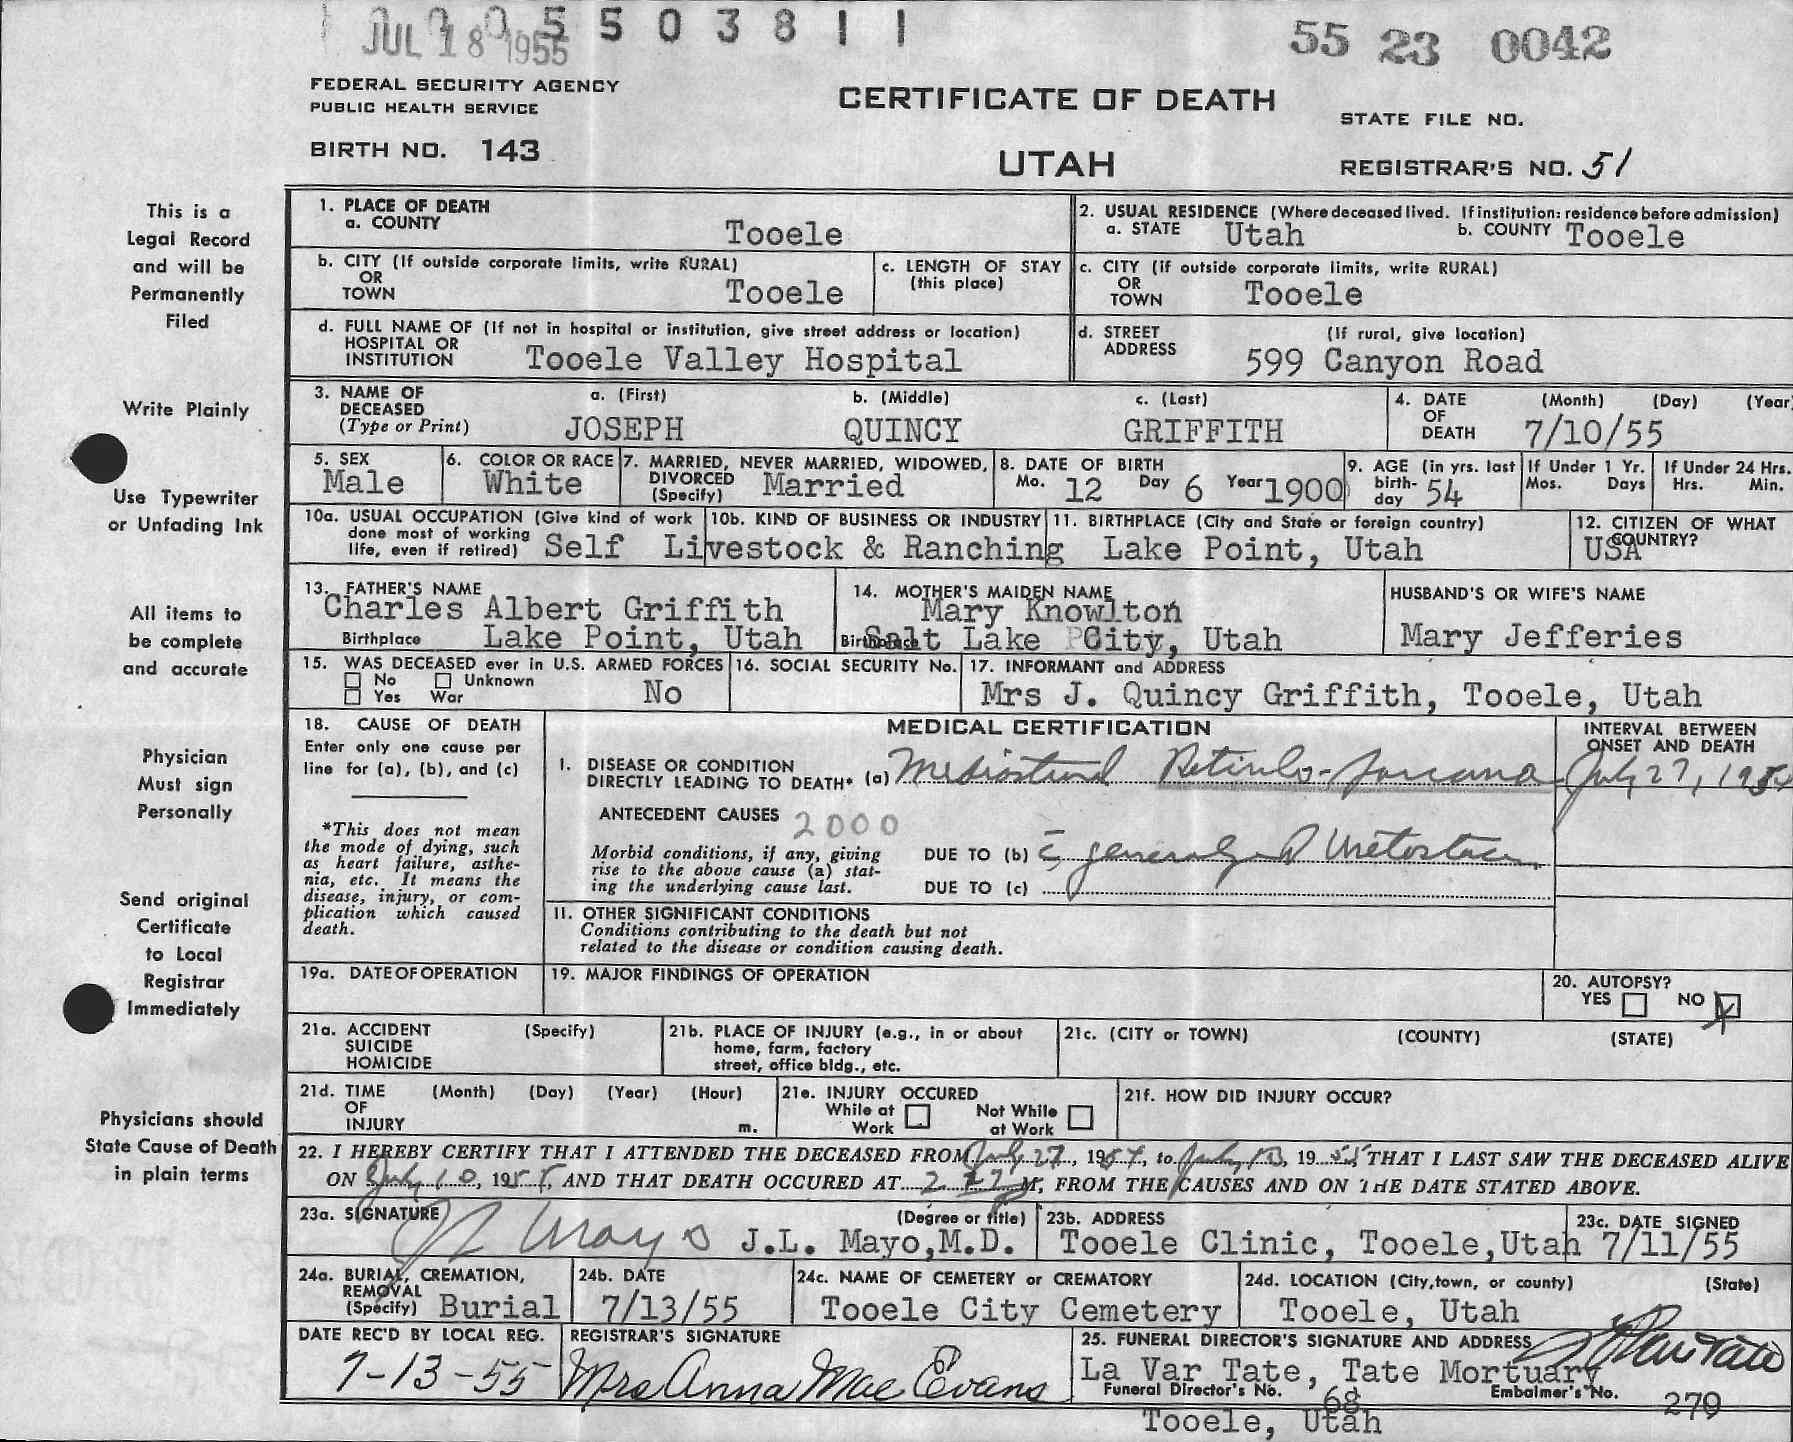 JUL 18 1955
5503811
55 23 0042
FEDERAL SECURITY AGENCY
PUBLIC HEALTH SERVICE
CERTIFICATE OF DEATH
STATE FILE NO.
BIRTH NO. 143
UTAH
REGISTRAR'S NO. 51
This is a
Legal Record
and will be
Permanently
Filed
Write Plainly
Use Typewriter
or Unfading Ink
All items to
be complete
and accurate
Physician
Must sign
Personally
Send original
Certificate
to Local
Registrar
Immediately
Physicians should
State Cause of Death
in plain terms
1. PLACE OF DEATH
a. COUNTY Tooele
2. USUAL RESIDENCE (Where deceased lived. If institution: residence before admission)
a. STATE Utah b. COUNTY Tooele
b. CITY (If outside corporate limits, write RURAL)
OR
TOWN Tooele
c. LENGTH OF STAY
(this place)
c. CITY (If outside corporate limits, write RURAL)
OR
TOWN Tooele
d. FULL NAME OF (If not in hospital or institution, give street address or location)
HOSPITAL OR
INSTITUTION Tooele Valley Hospital
d. STREET (If rural, give location)
ADDRESS 599 Canyon Road
3. NAME OF a. (First) b. (Middle) c. (Last)
DECEASED
(Type or Print) JOSEPH QUINCY GRIFFITH
4. DATE (Month) (Day) (Year)
OF
DEATH 7/10/55
5. SEX
Male
6. COLOR OR RACE
White
7. MARRIED, NEVER MARRIED, WIDOWED,
DIVORCED
(Specify) Married
8. DATE OF BIRTH
Mo. 12 Day 6 Year 1900
9. AGE (in yrs. last
birth-
day 54
If Under 1 Yr.
Mos. Days
If Under 24 Hrs.
Hrs. Min.
10a. USUAL OCCUPATION (Give kind of work
done most of working
life, even if retired) Self
10b. KIND OF BUSINESS OR INDUSTRY
Livestock & Ranching
11. BIRTHPLACE (City and State or foreign country)
Lake Point, Utah
12. CITIZEN OF WHAT
COUNTRY?
USA
13. FATHER'S NAME
Charles Albert Griffith
Birthplace Lake Point, Utah
14. MOTHER'S MAIDEN NAME
Mary Knowlton
Birthplace Salt Lake City, Utah
HUSBAND'S OR WIFE'S NAME
Mary Jefferies
15. WAS DECEASED ever in U.S. ARMED FORCES
No Unknown
Yes War No
16. SOCIAL SECURITY No.
17. INFORMANT and ADDRESS
Mrs J. Quincy Griffith, Tooele, Utah
18. CAUSE OF DEATH
Enter only one cause per
line for (a), (b), and (c)
*This does not mean
the mode of dying, such
as heart failure, asthe-
nia, etc. It means the
disease, injury, or com-
plication which caused
death.
MEDICAL CERTIFICATION
INTERVAL BETWEEN
ONSET AND DEATH
I. DISEASE OR CONDITION
DIRECTLY LEADING TO DEATH* (a)
July 27, 1954
ANTECEDENT CAUSES 2000
Morbid conditions, if any, giving
rise to the above cause (a) stat-
ing the underlying cause last.
DUE TO (b)
DUE TO (c)
II. OTHER SIGNIFICANT CONDITIONS
Conditions contributing to the death but not
related to the disease or condition causing death.
19a. DATE OF OPERATION
19. MAJOR FINDINGS OF OPERATION
20. AUTOPSY?
YES NO X
21a. ACCIDENT (Specify)
SUICIDE
HOMICIDE
21b. PLACE OF INJURY (e.g., in or about
home, farm, factory
street, office bldg., etc.
21c. (CITY or TOWN) (COUNTY) (STATE)
21d. TIME (Month) (Day) (Year) (Hour)
OF
INJURY m.
21e. INJURY OCCURED
While at Not While
Work at Work
21f. HOW DID INJURY OCCUR?
22. I HEREBY CERTIFY THAT I ATTENDED THE DECEASED FROM July 27, 1954, to July 10, 1955 THAT I LAST SAW THE DECEASED ALIVE
ON July 10, 1955, AND THAT DEATH OCCURED AT M, FROM THE CAUSES AND ON THE DATE STATED ABOVE.
23a. SIGNATURE (Degree or title)
J L Mayo J.L. Mayo, M.D.
23b. ADDRESS
Tooele Clinic, Tooele, Utah
23c. DATE SIGNED
7/11/55
24a. BURIAL, CREMATION,
REMOVAL
(Specify) Burial
24b. DATE
7/13/55
24c. NAME OF CEMETERY or CREMATORY
Tooele City Cemetery
24d. LOCATION (City, town, or county) (State)
Tooele, Utah
DATE REC'D BY LOCAL REG.
7-13-55
REGISTRAR'S SIGNATURE
Mrs Anna Mae Evans
25. FUNERAL DIRECTOR'S SIGNATURE AND ADDRESS
La Var Tate, Tate Mortuary
Funeral Director's No. 68 Embalmer's No. 279
Tooele, Utah